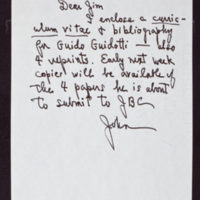 Dear Jim
I enclose a curric-
ulum vitae & bibliography
for Guido Guidotti — also
4 reprints. Early next week
copies will be available of
the 4 papers he is about
to submit to JBC
John